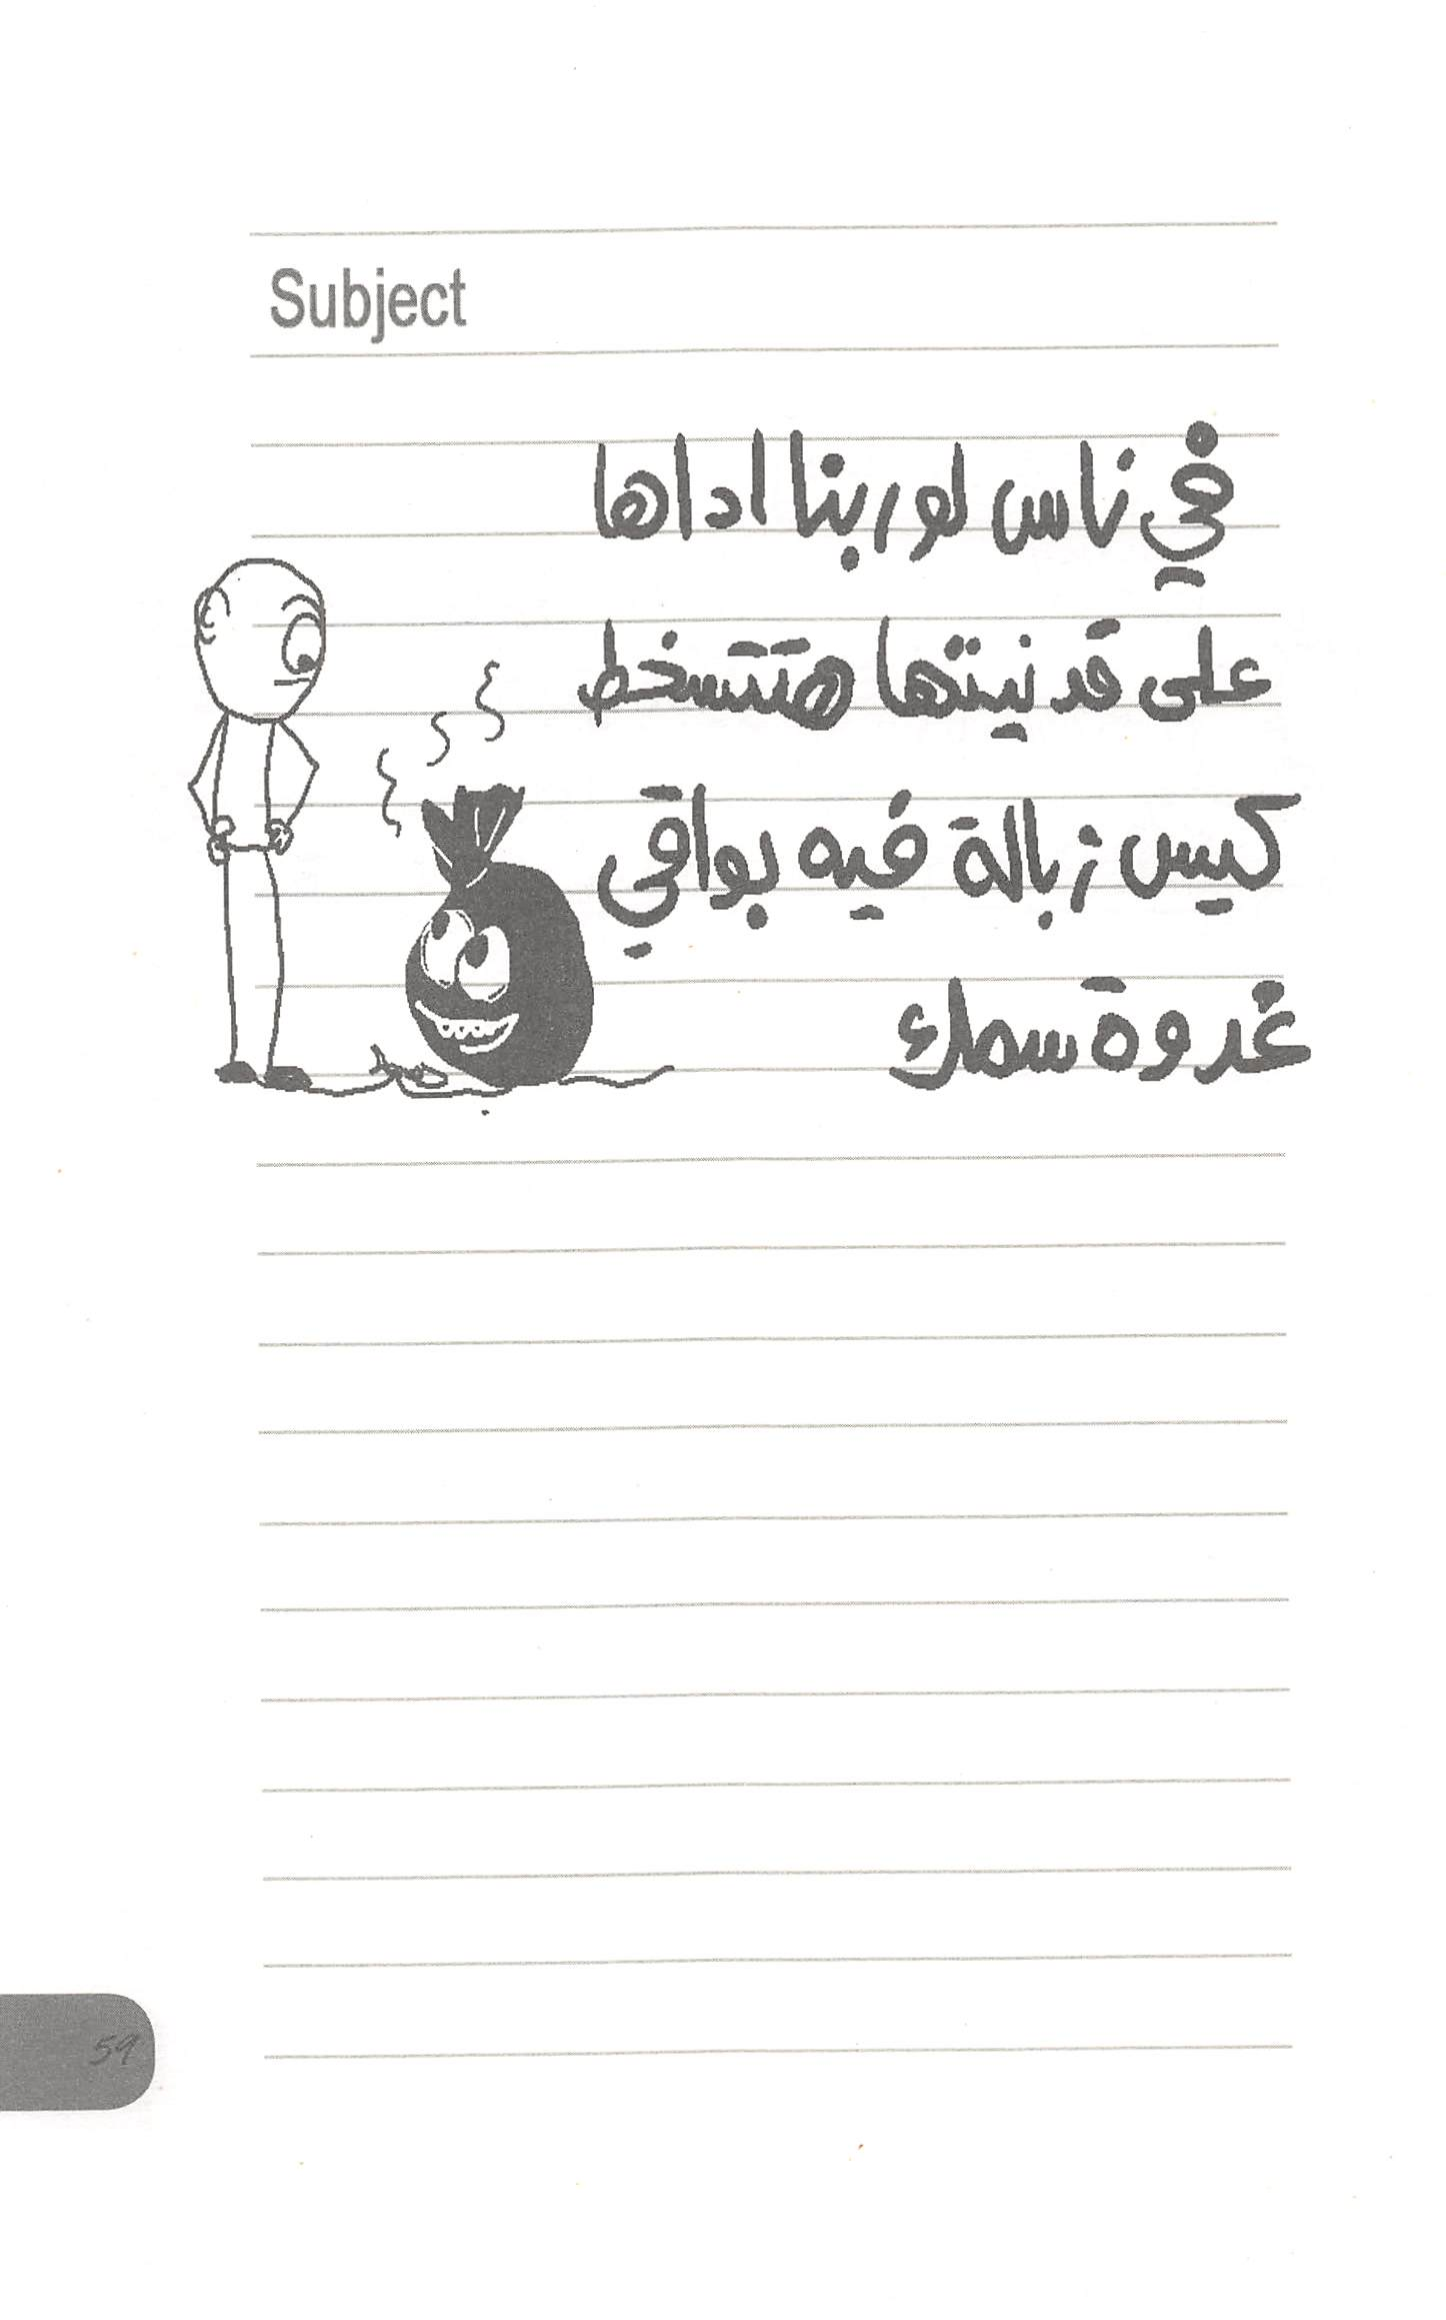 Subject
في ناس لو ربنا اداها
على قد نيتها هتتسخط
كيس زبالة فيه بواقي
غدوة سمك
59